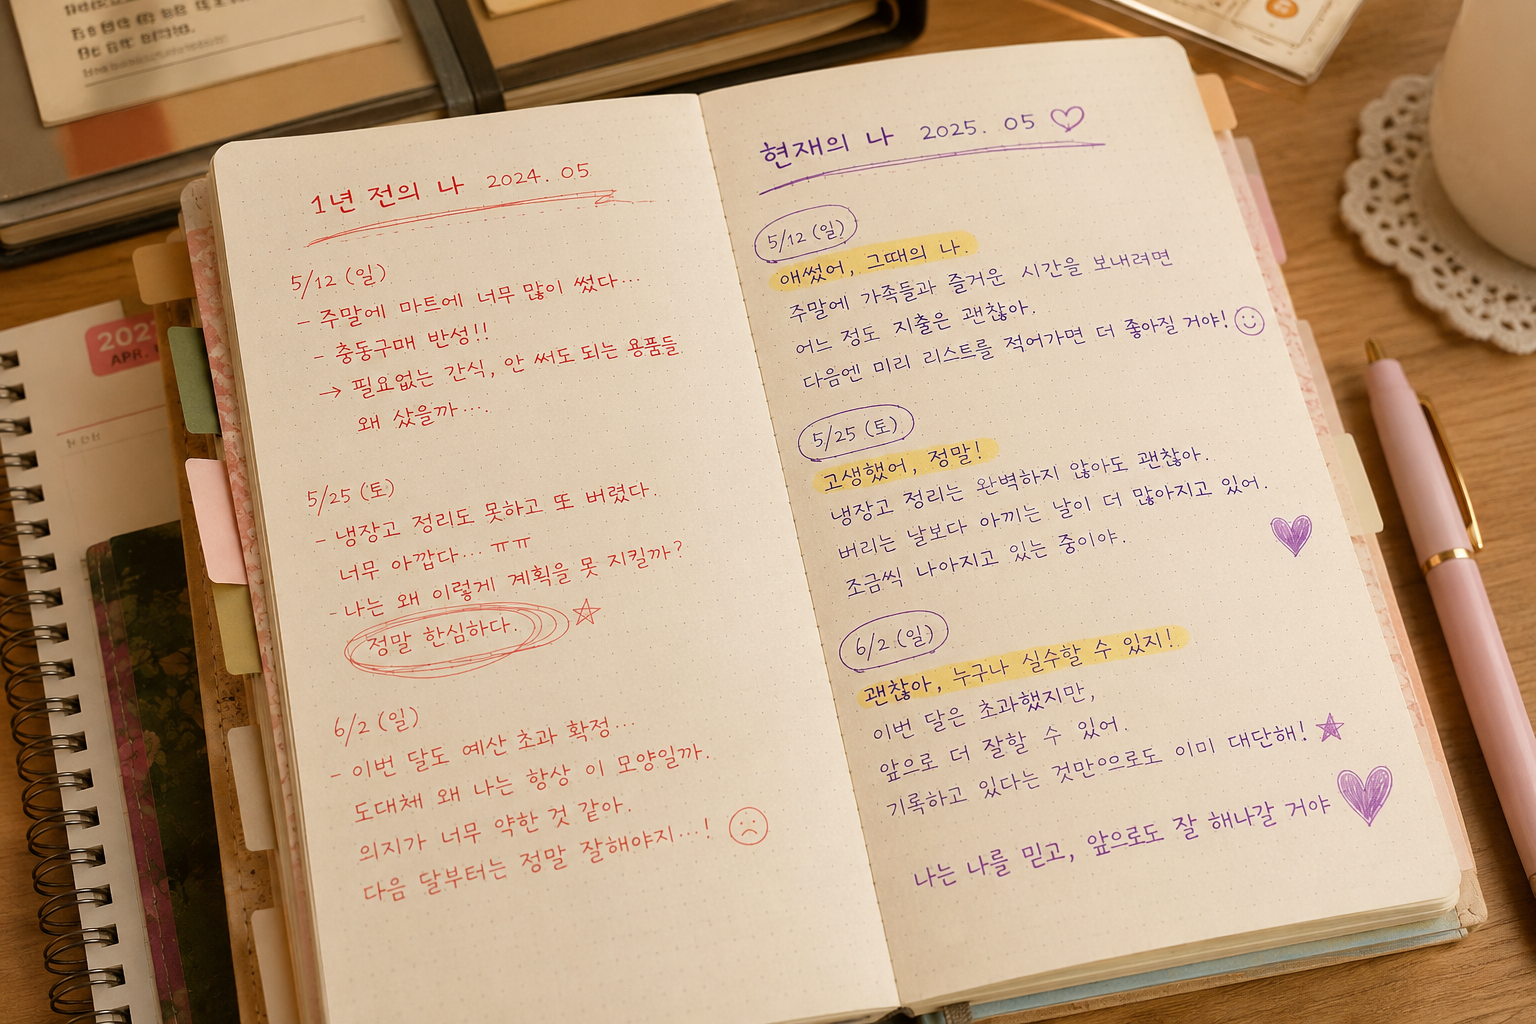 1년 전의 나 2024. 05
5/12 (일)
- 주말에 마트에 너무 많이 썼다…
- 충동구매 반성!!
→ 필요없는 간식, 안 써도 되는 용품들
왜 샀을까….
5/25 (토)
- 냉장고 정리도 못하고 또 버렸다.
너무 아깝다… ㅠㅠ
- 나는 왜 이렇게 계획을 못 지킬까?
정말 한심하다.
6/2 (일)
- 이번 달도 예산 초과 확정…
도대체 왜 나는 항상 이 모양일까.
의지가 너무 약한 것 같아.
다음 달부터는 정말 잘해야지…!
현재의 나 2025. 05
5/12 (일)
애썼어, 그때의 나.
주말에 가족들과 즐거운 시간을 보내려면
어느 정도 지출은 괜찮아.
다음엔 미리 리스트를 적어가면 더 좋아질 거야!
5/25 (토)
고생했어, 정말!
냉장고 정리는 완벽하지 않아도 괜찮아.
버리는 날보다 아끼는 날이 더 많아지고 있어.
조금씩 나아지고 있는 중이야.
6/2 (일)
괜찮아, 누구나 실수할 수 있지!
이번 달은 초과했지만,
앞으로 더 잘할 수 있어.
기록하고 있다는 것만으로도 이미 대단해!
나는 나를 믿고, 앞으로도 잘 해나갈 거야
APR.